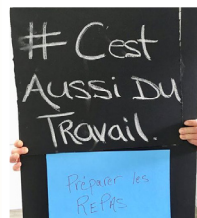 # C'est
Aussi Du
Travail.
Préparer les
REPAS